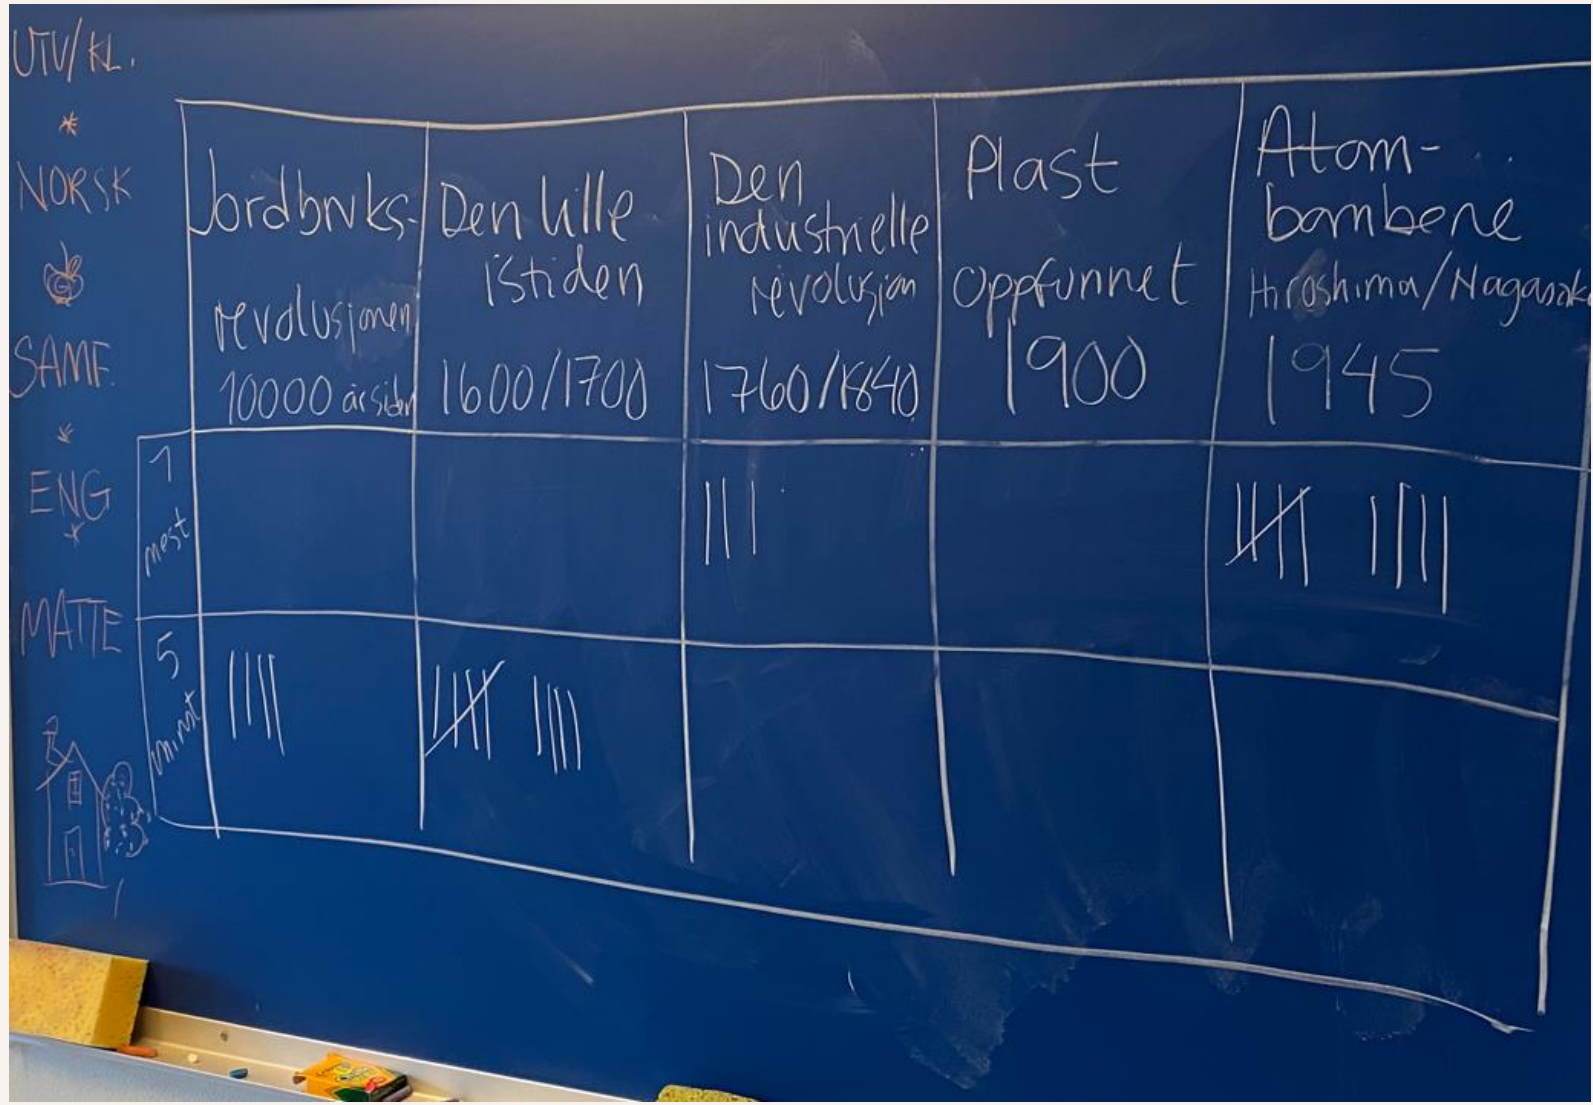 UTV/KL.
NORSK
SAMF.
ENG
MATTE
Jordbruks-
revolusjonen
10000 år siden
Den lille
istiden
1600/1700
Den
industrielle
revolusjon
1760/1840
Plast
oppfunnet
1900
Atom-
bombene
Hiroshima/Nagasaki
1945
1
mest
5
minst